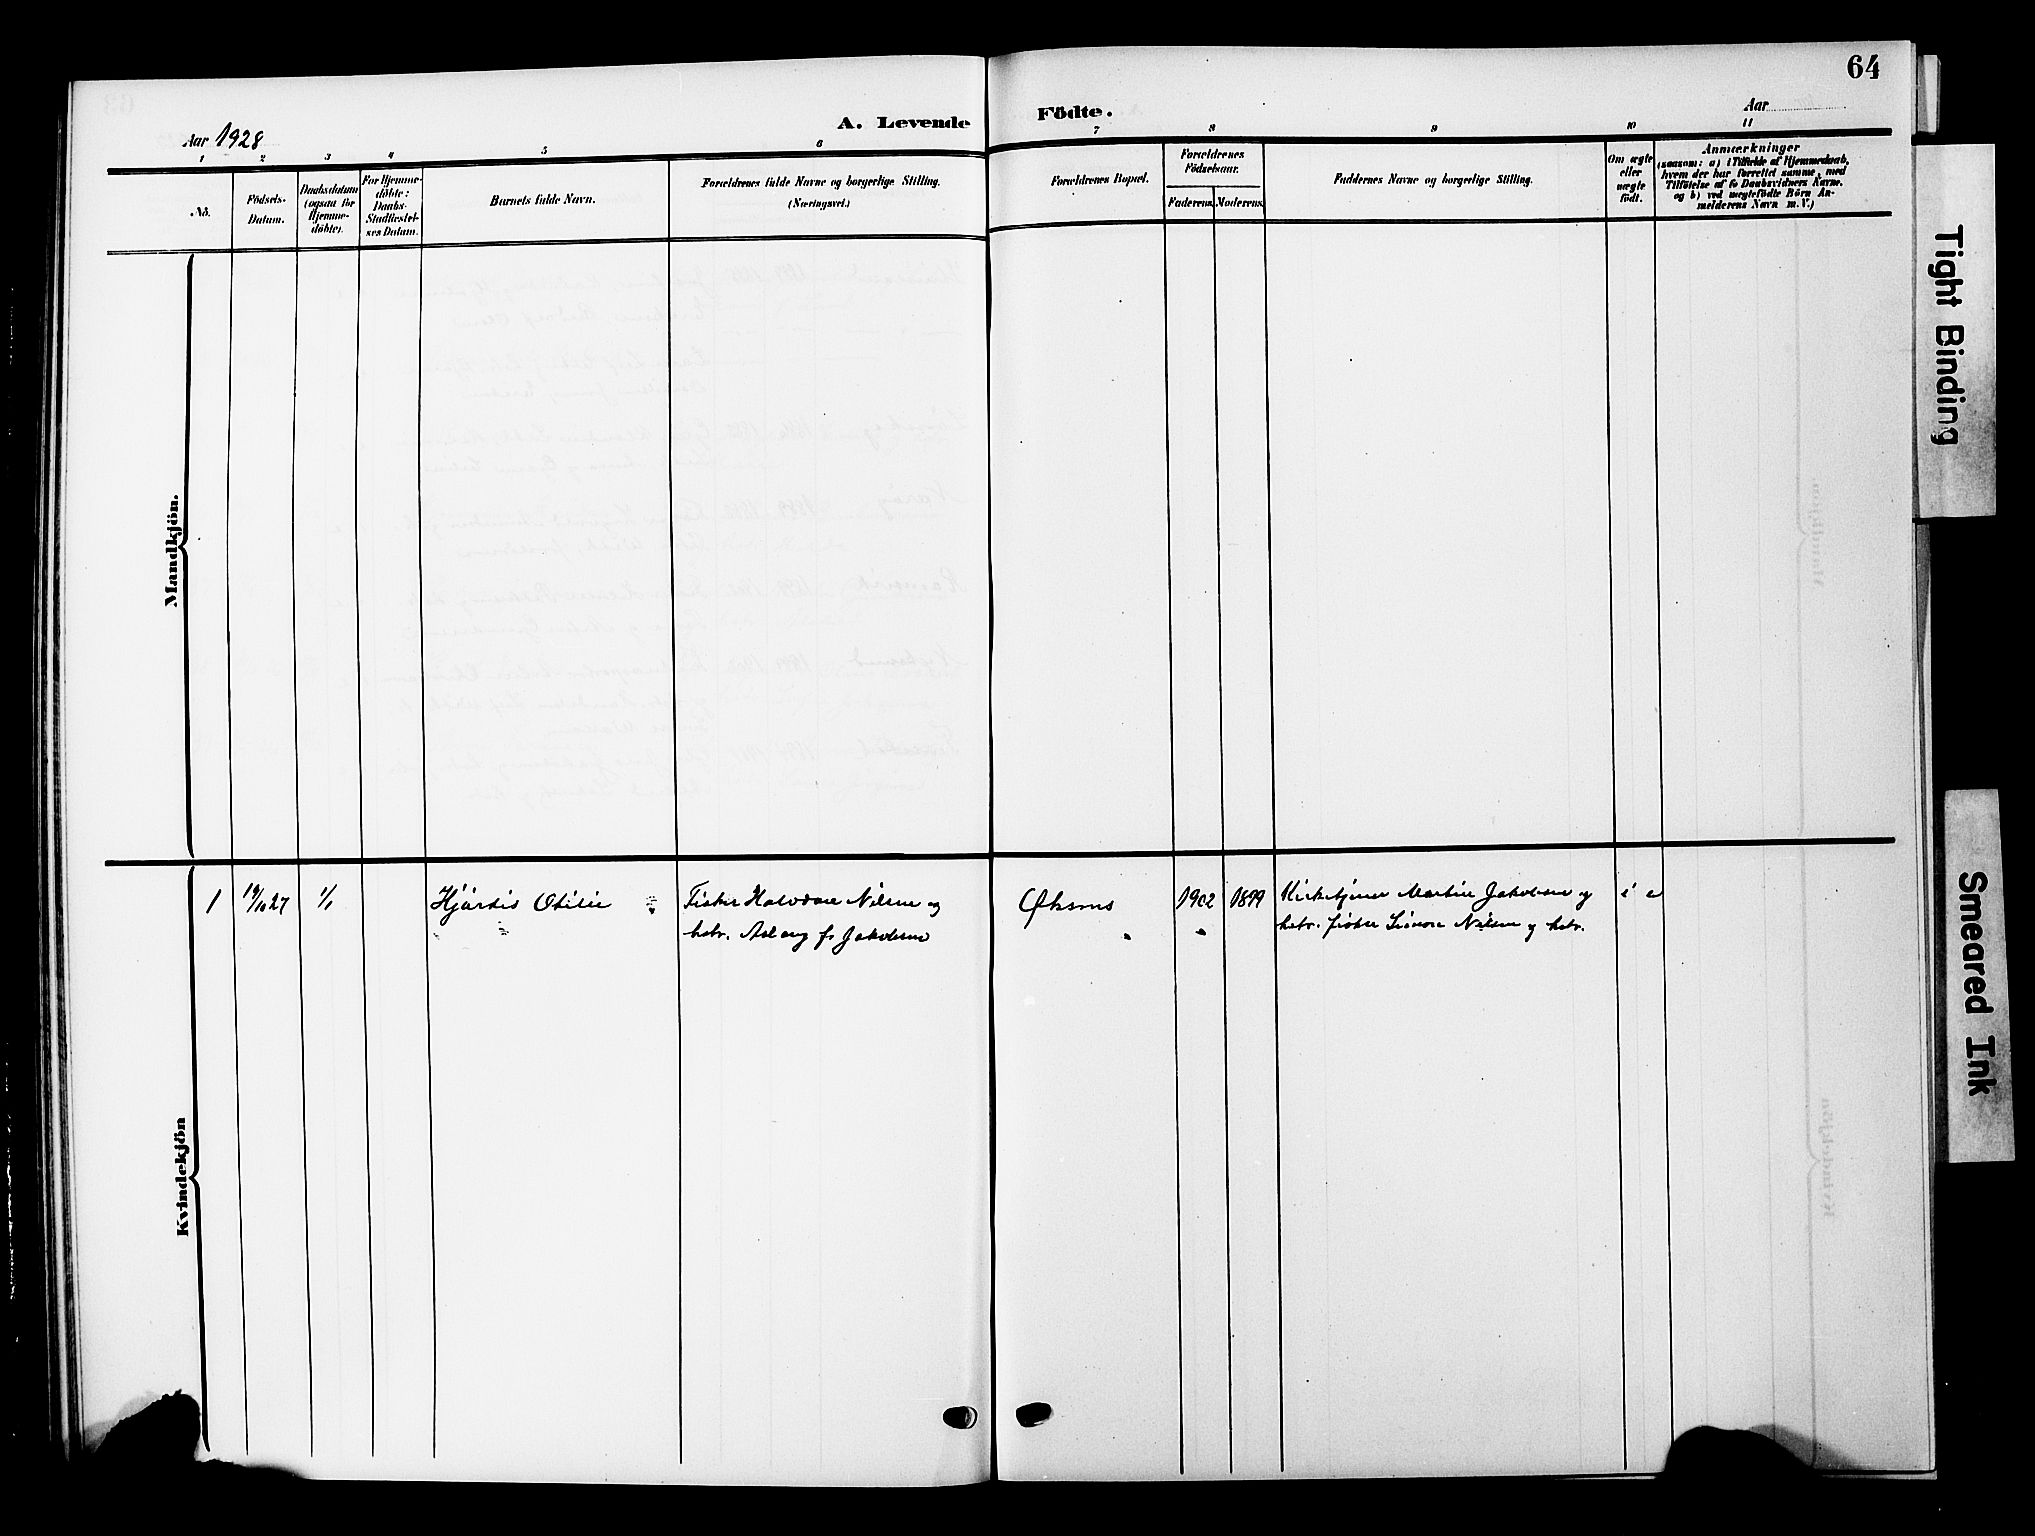 64
A. Levende Födte.
Aar 1928
Aar
1 2 3 4 5 6 7 8 9 10 11
No.
Födsels-
Datum.
Daabsdatum
(ogsaa for
Hjemme-
döbte).
For Hjemme-
döbte:
Daabs-
Stadfæstel-
ses Datum.
Barnets fulde Navn.
Forældrenes fulde Navne og borgerlige Stilling.
(Næringsvei.)
Forældrenes Bopæl.
Forældrenes
Födselsaar.
Faderens. Moderens.
Faddernes Navne og borgerlige Stilling.
Om ægte
eller
uægte
födt.
Anmærkninger
(saasom: a) i Tilfælde af Hjemmedaab,
hvem der har forrettet samme, med
Tilföielse af to Daabsvidners Navne.
og b) ved uægtefödte Börn An-
melderens Navn m. V.)
Mandkjön.
Kvindekjön
1 19/10 27 1/1 Hjørdis Otilie Fisker Halvdan Nilsen og Øksnes 1902 1899 Kirketjener Martin Jakobsen og
hstr. Aslaug f. Jakobsen hstr. fisker Nilsen og hstr.
Tight Binding
Smeared Ink